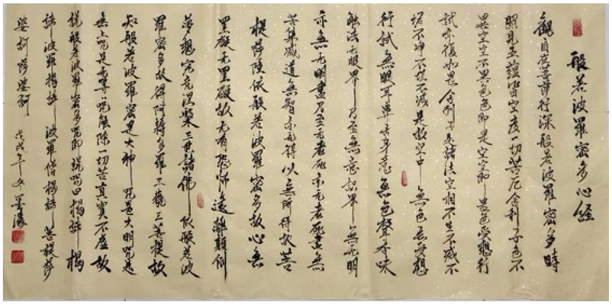 般若波羅密多心經
觀自在菩薩行深般若波羅密多時
照見五蘊皆空度一切苦厄舍利子色不
異空空不異色色即是空空即是色受想行
識亦復如是舍利子是諸法空相不生不滅不
垢不淨不增不減是故空中無色無受想
行識無眼耳鼻舌身意無色聲香味
觸法無眼界乃至無意識界無無明
亦無無明盡乃至無老死亦無老死盡無
苦集滅道無智亦無得以無所得故菩
提薩陲依般若波羅密多故心無
罣礙無罣礙故無有恐怖遠離顛倒
夢想究竟涅槃三世諸佛依般若波
羅密多故得阿耨多羅三藐三菩提故
知般若波羅密多是大神咒是大明咒是
無上咒是無等等咒能除一切苦真實不虛故
說般若波羅密多咒即說咒曰揭諦揭
諦波羅揭諦波羅僧揭諦菩提薩
婆訶
戊戌年